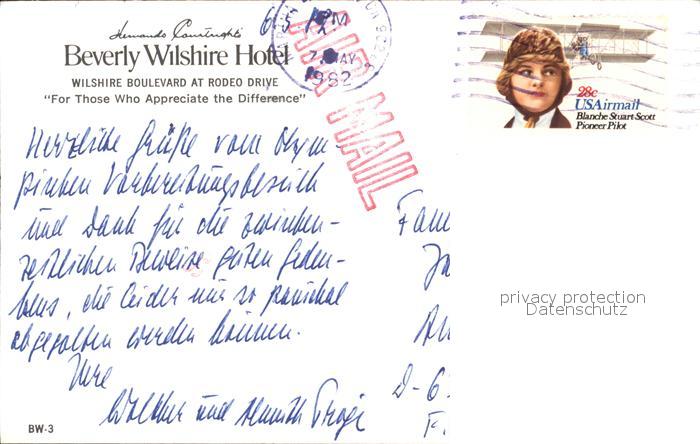 Hernando Courtright's
Beverly Wilshire Hotel
WILSHIRE BOULEVARD AT RODEO DRIVE
"For Those Who Appreciate the Difference"
PM
MAY
1982
AIR MAIL
28c
USAirmail
Blanche Stuart Scott
Pioneer Pilot
Herzliche Grüße vom Olym-
pischen Vorbereitungsbesuch
und Dank für die zwischen-
zeitlichen Beweise guten Geden-
kens, die leider nur so pauschal
abgegolten werden können.
Ihre
und
Fam
D-6
privacy protection
Datenschutz
BW-3